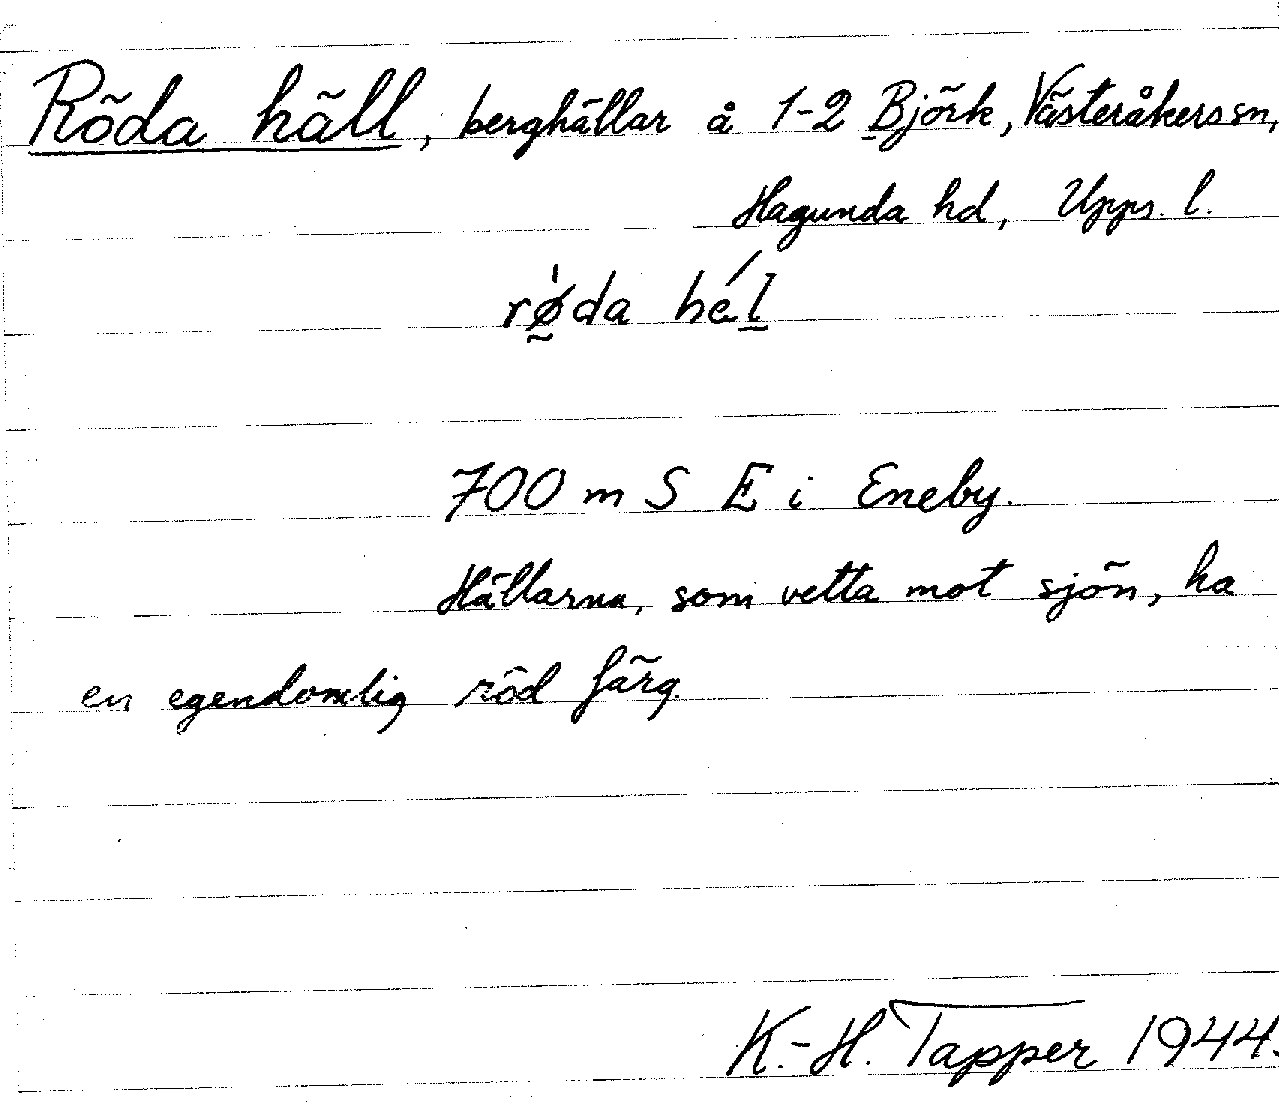 Röda häll, berghällar å 1-2 Björk, Västeråkers sn,
Hagunda hd, Upps. l.
rø̀da hél
700 m S E i Eneby.
Hällarna, som vetta mot sjön, ha
en egendomlig röd färg.
K.-H. Tapper 1944.